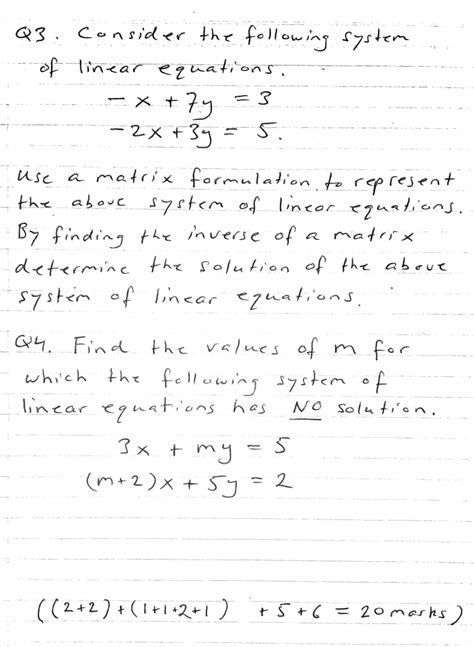 Q3. Consider the following system
of linear equations.
-x + 7y = 3
-2x + 3y = 5.
Use a matrix formulation to represent
the above system of linear equations.
By finding the inverse of a matrix
determine the solution of the above
system of linear equations.
Q4. Find the values of m for
which the following system of
linear equations has NO solution.
3x + my = 5
(m+2)x + 5y = 2
((2+2)+(1+1+2+1) +5+6 = 20 marks)